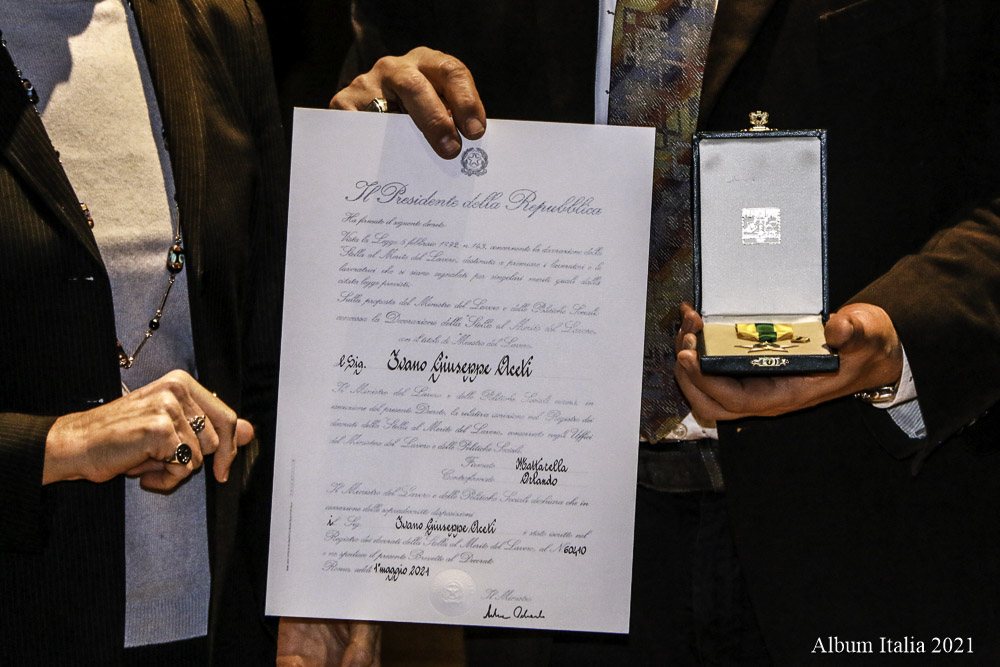 Il Presidente della Repubblica
Ha firmato il seguente decreto:
Vista la Legge 5 febbraio 1992, n. 143, concernente la decorazione della
"Stella al Merito del Lavoro", destinata a premiare i lavoratori e le
lavoratrici che si siano segnalati per singolari meriti quali dalla
citata legge previsti;
Sulla proposta del Ministro del Lavoro e delle Politiche Sociali;
concesso la Decorazione della "Stella al Merito del Lavoro"
con il titolo di Maestro del Lavoro
al Sig. Ivano Giuseppe Aceti
Il Ministro del Lavoro e delle Politiche Sociali curerà, in
esecuzione del presente Decreto, la relativa iscrizione nel Registro dei
decorati della Stella al Merito del Lavoro, conservato negli Uffici
del Ministero del Lavoro e delle Politiche Sociali.
Firmato Mattarella
Controfirmato Orlando
Il Ministro del Lavoro e delle Politiche Sociali dichiara che in
esecuzione delle sopraindicate disposizioni
il Sig. Ivano Giuseppe Aceti è stato iscritto nel
Registro dei decorati della Stella al Merito del Lavoro, al N 60410
e ha spedito il presente Brevetto al Decorato.
Roma, addì 1° maggio 2021
Il Ministro
Album Italia 2021